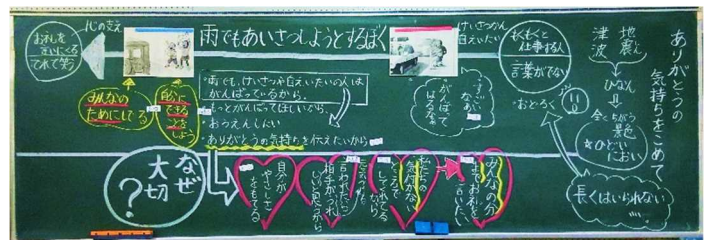 ありがとうの
気持ちをこめて
地震と
津波
ひなん
全くちがう
景色
ひどい
におい
長くはいられない
もくもくと
仕事する人
言葉がでない
・おどろく
けいさつかん
自えいたい
すごい
なあ
がんばって
はるなあ
雨でもあいさつしようとするぼく
心の交え
おれいを
言いにくる
てれて笑う
みんなの
ためにしてる
自分に
できる
ことを
しよう
・雨でも、けいさつや自えいたいの人は
がんばっているから。
・もっとがんばってほしいから
・おうえんしたい
・ありがとうの気持ちを伝えたいから
なぜ
大切
?
自分が
やさしさ
をもてる
言われたら
相手がうれ
しいと思うから
私たちの
気付かない
ところで
してくれてる
から
みんなの分
までお礼を
言いたい